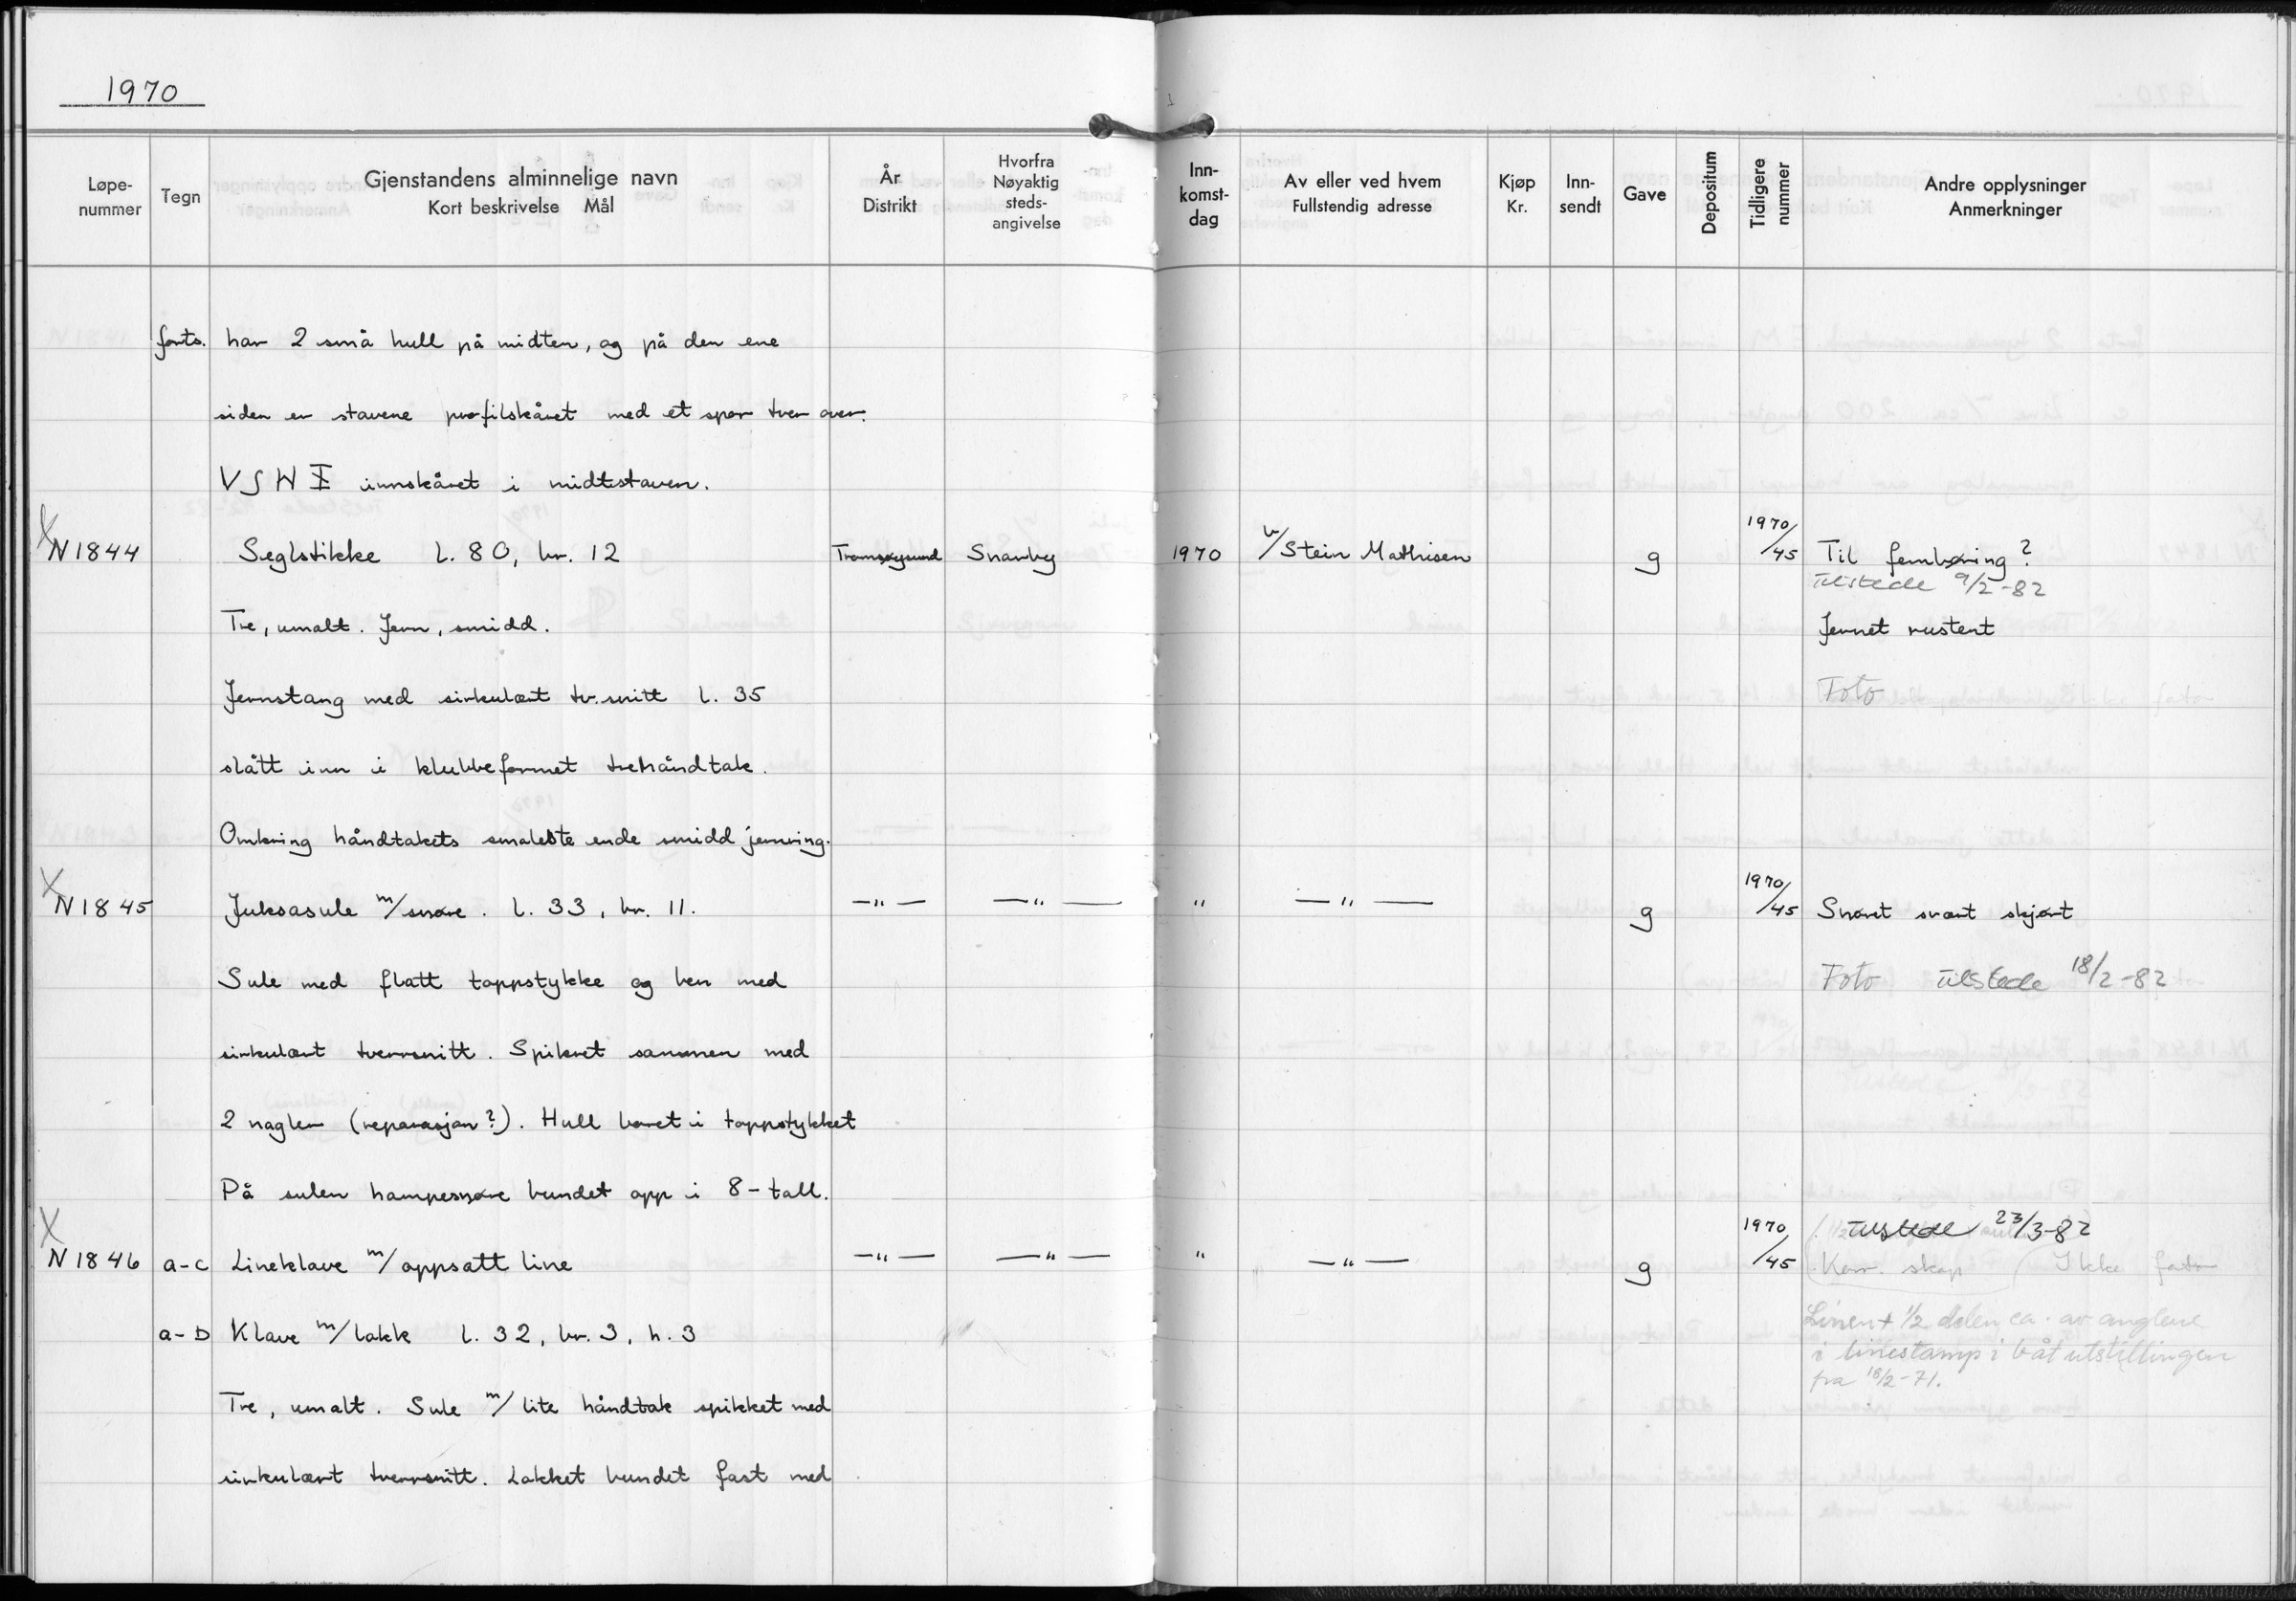 1970
Løpe-nummer Tegn Gjenstandens alminnelige navn Kort beskrivelse Mål År Distrikt Hvorfra Nøyaktig steds-angivelse Inn-komst-dag Av eller ved hvem Fullstendig adresse Kjøp Kr. Inn-sendt Gave Depositum Tidligere nummer Andre opplysninger Anmerkninger
forts. har 2 små hull på midten, og på den ene
siden er stavene profilskåret med et spor tver over.
VSH innskåret i midtstaven.
X N 1844 Seglstikke L. 80, br. 12 Tromsøysund Snarby 1970 v/Stein Mathisen g 1970/45 Til fembøring?
Tilstede 9/2-82
Tre, umalt. Jern, smidd. Jernet rustent
Jernstang med sirkulært tv.snitt l. 35 Foto
slått inn i klubbeformet trehåndtak.
Omkring håndtakets smaleste ende smidd jernring.
X N 1845 Juksasule m/snøre. l. 33, br. 11. —"— —"— " —"— g 1970/45 Snøret svært skjørt
Sule med flatt toppstykke og ben med Foto Tilstede 18/2-82
sirkulært tverrsnitt. Spikret sammen med
2 nagler (reparasjon?). Hull boret i toppstykket
På sulen hampesnøre bundet opp i 8-tall.
Tilstede 23/3-82
X N 1846 a-c Lineklave m/oppsatt line —"— —"— " —"— g 1970/45 Kon. skap Ikke foto
a-b Klave m/lakk l. 32, br. 3, h. 3 Linen + 1/2 delen ca. av anglene
i linestamp i båtutstillingen
fra 18/2-71.
Tre, umalt. Sule m/lite håndtak spikket med
sirkulært tverrsnitt. Lakket bundet fast med